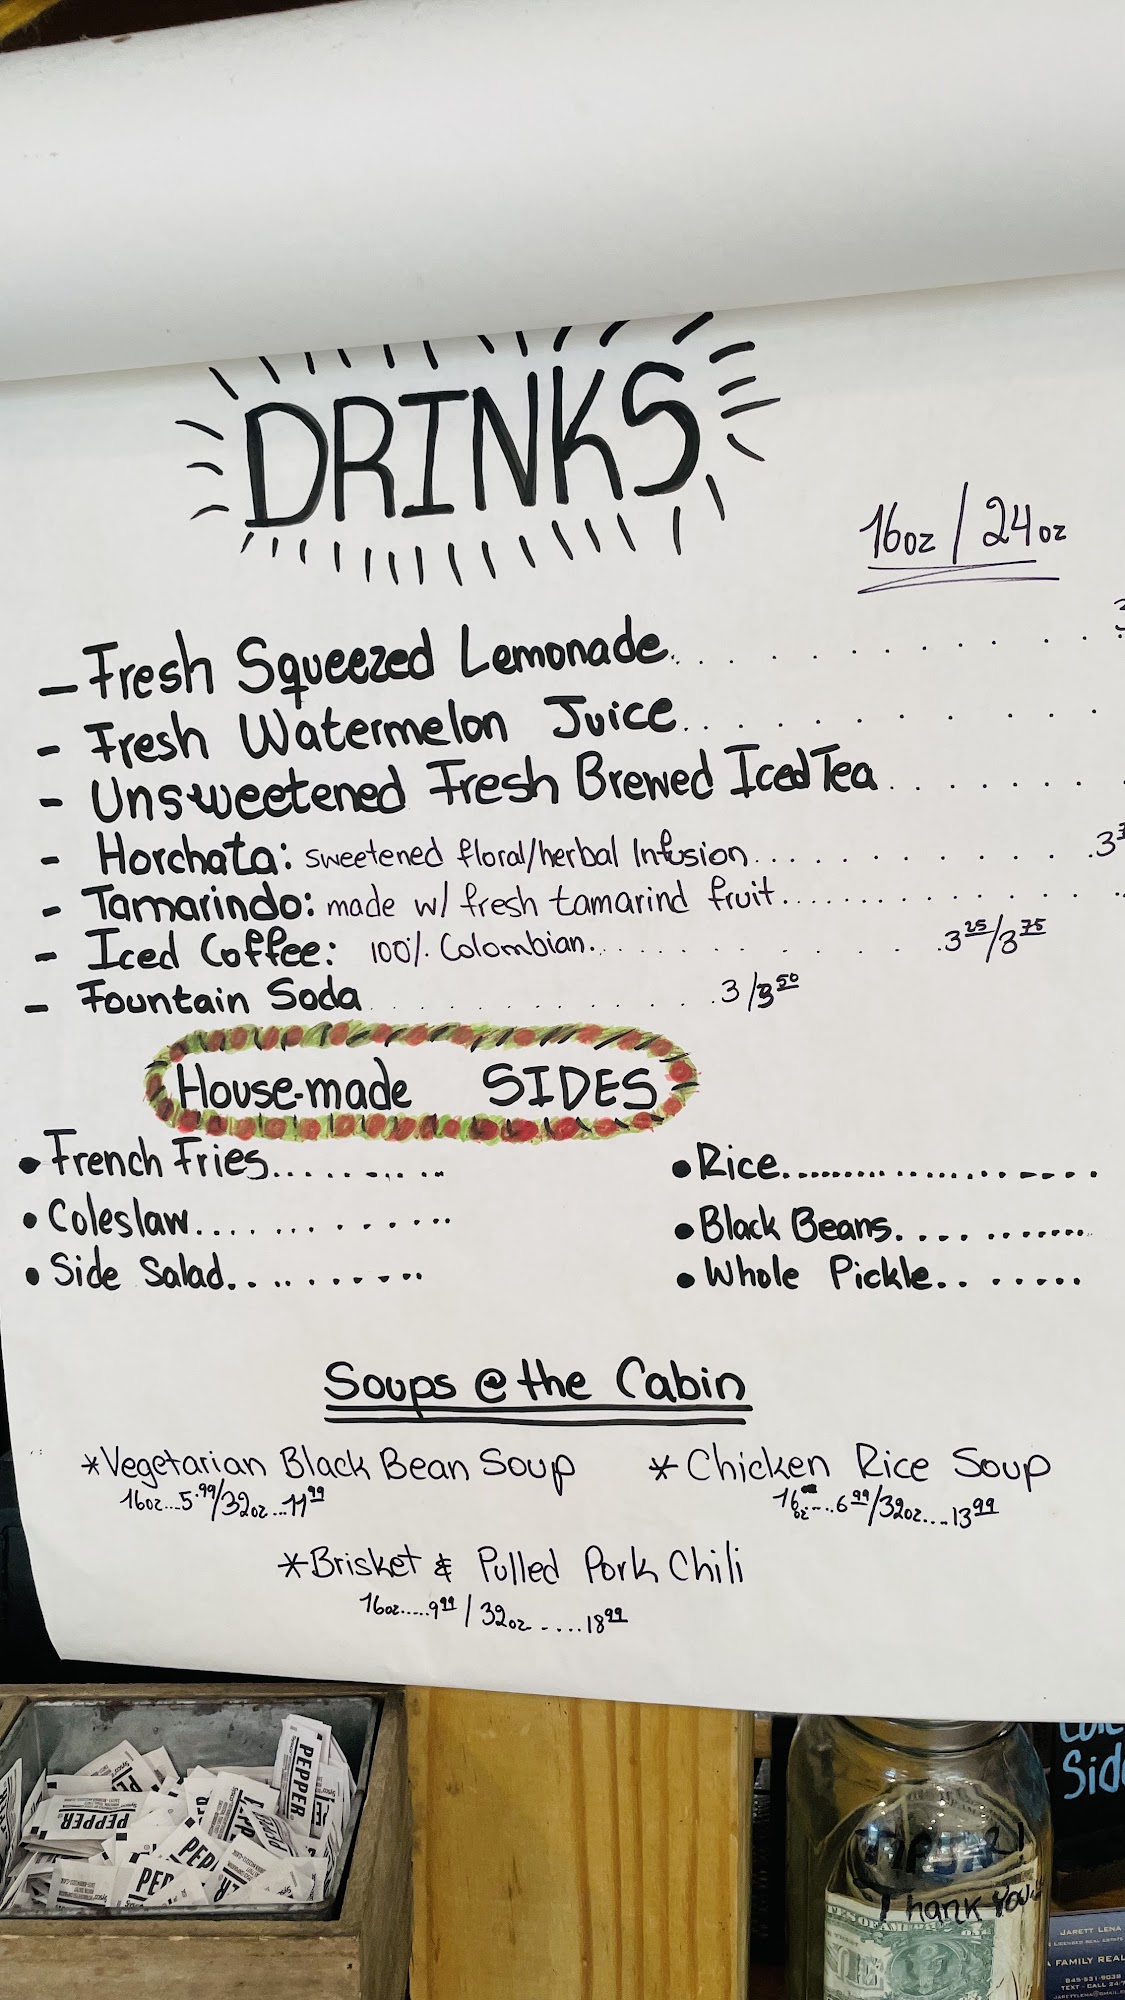 DRINKS
16oz / 24oz
- Fresh Squeezed Lemonade..........
- Fresh Watermelon Juice..........
- Unsweetened Fresh Brewed Iced Tea........
- Horchata: sweetened floral/herbal Infusion..............3
- Tamarindo: made w/ fresh tamarind fruit..............
- Iced Coffee: 100% Colombian...........3 25/3 75
- Fountain Soda.............3/3 50
House-made SIDES
• French Fries..........
• Rice....................
• Coleslaw............
• Black Beans............
• Side Salad..........
• Whole Pickle........
Soups @ the Cabin
*Vegetarian Black Bean Soup
16oz...5.99/32oz...11 99
* Chicken Rice Soup
16oz....6 99/32oz....13 99
*Brisket & Pulled Pork Chili
16oz.....9 99 / 32oz......18 99
PEPPER
PEPPER
PEP
PEP
Side
TIPS
Thank You
JARETT LENA
LICENSED REAL ESTATE
FAMILY REAL
845-531-9038
TEXT - CALL 24/7